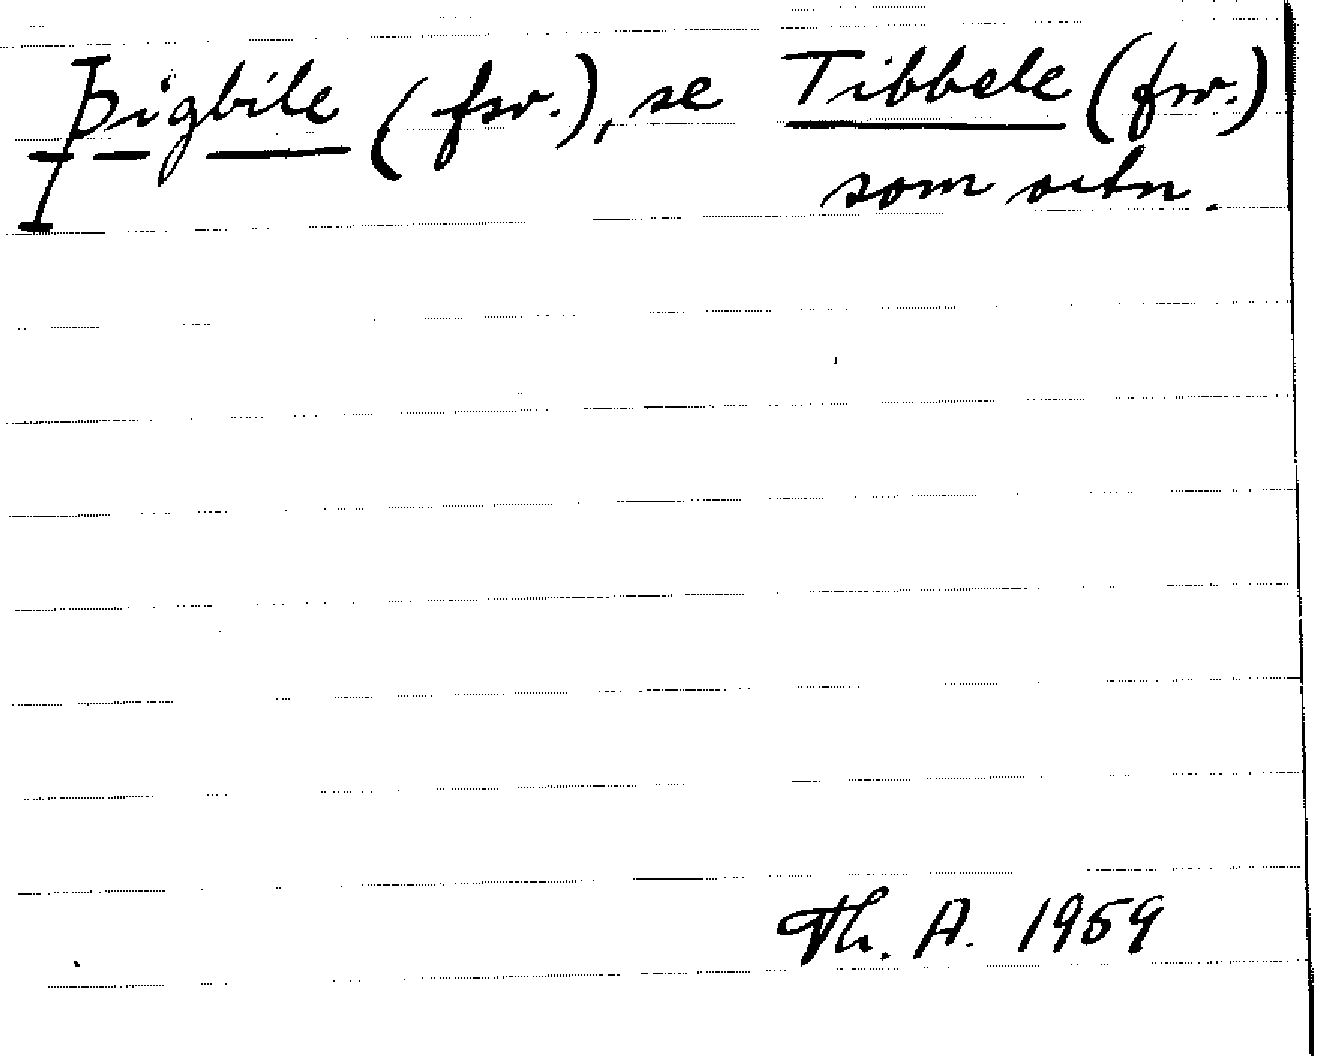 Þigbile (fsv.), se Tibbele (fsv.)
som ortn.
Th. A. 1959